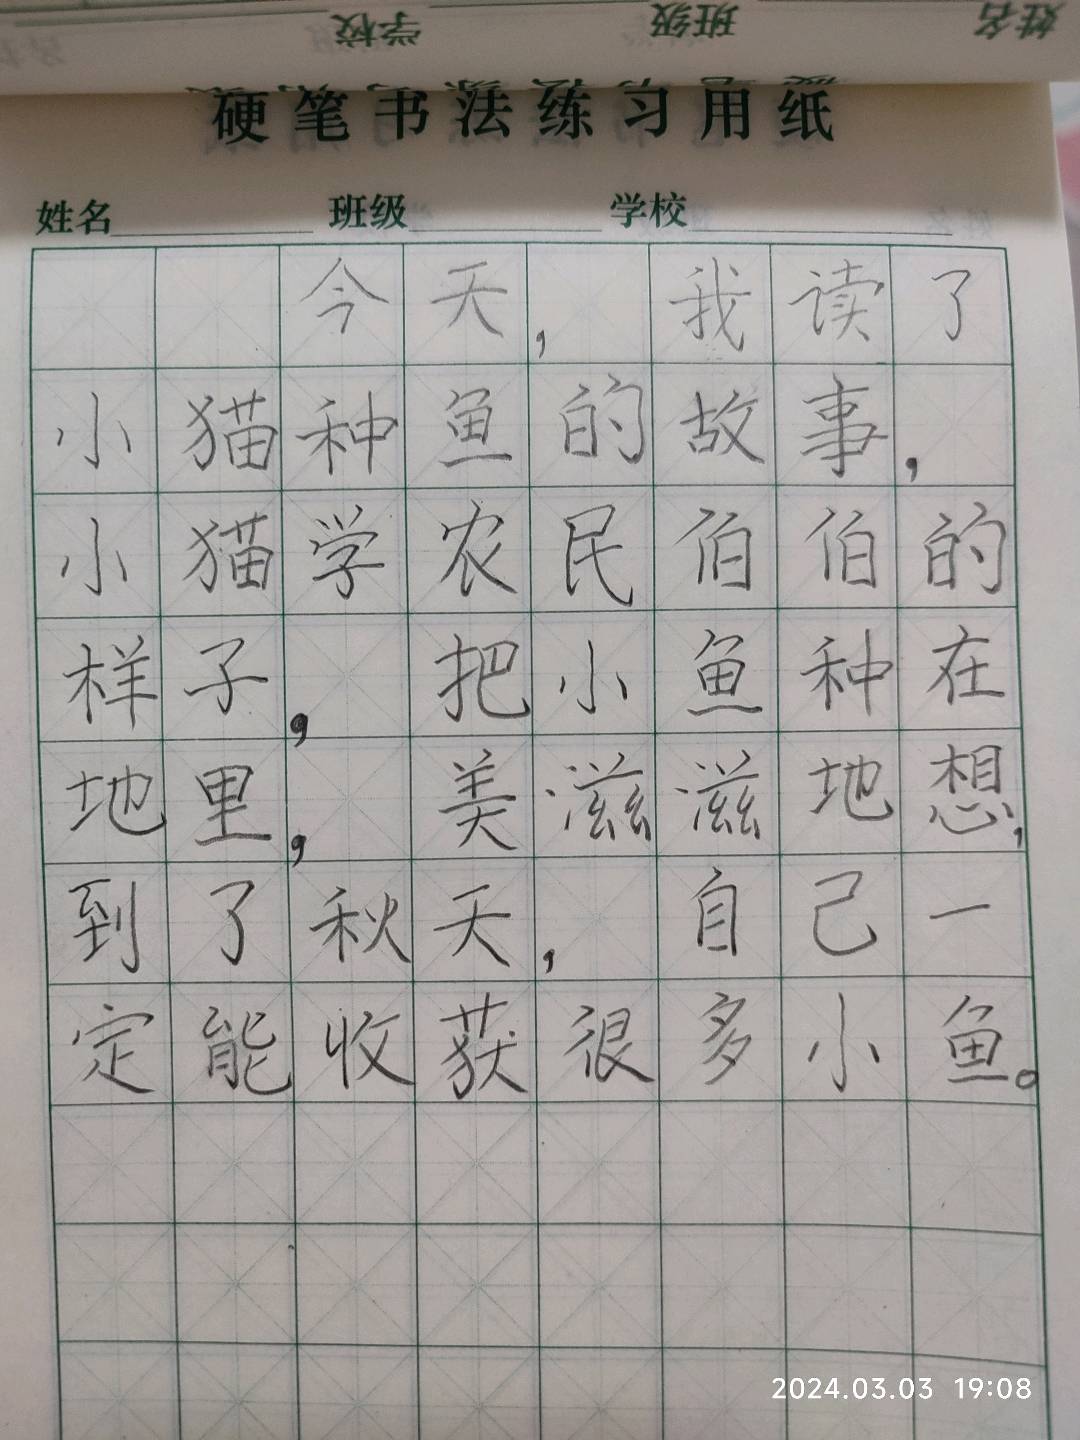 学校 班级 姓名
硬笔书法练习用纸
姓名 班级 学校
今天，我读了
小猫种鱼的故事，
小猫学农民伯伯的
样子，把小鱼种在
地里，美滋滋地想，
到了秋天，自己一
定能收获很多小鱼。
2024.03.03 19:08